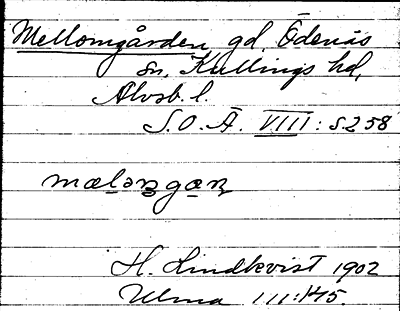 Mellomgården, gd, Ödenäs
sn, Kullings hd,
Älvsb. l.
S.O.Ä. VIII: s. 258
H. Lindkvist 1902
Ulma 111:145